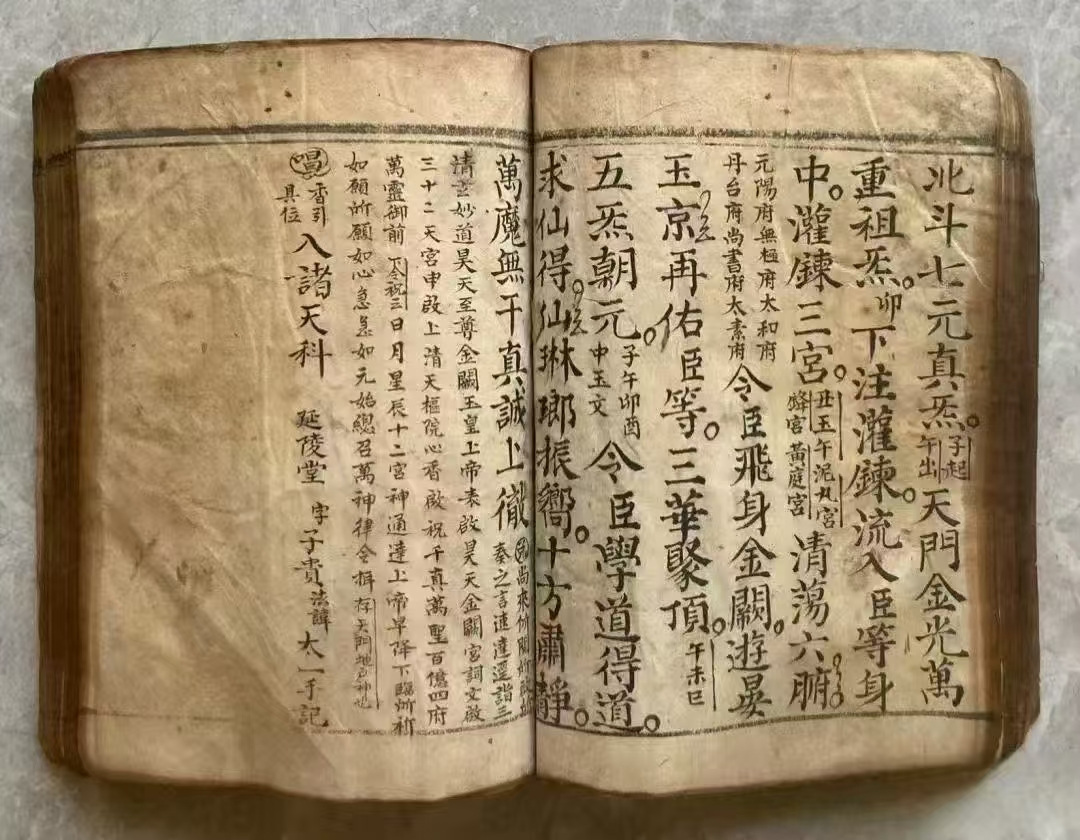 北斗七元真炁子起午出天門金光萬
重祖炁卯下注灌鍊流入臣等身
中灌鍊三宮丑玉午泥丸宮絳宮黃庭宮清蕩六腑
元陽府無極府太和府丹台府尚書府太素府令臣飛身金闕遊晏
玉京再佑臣等三華聚頂午未巳
五炁朝元子午卯酉中玉文令臣學道得道
求仙得仙琳瑯振嚮十方肅靜
萬魔無干真誠上徹尚來修
奏之言速達遥詣三
清玄妙道昊天至尊金闕玉皇上帝表啟昊天金闕宮詞文啟
三十二天宮申啟上清天樞院心香啟祝千真萬聖一百億四府
萬靈御前下令祝三日月星辰十二宮神通達上帝早降下臨所祈
如願所願如心急急如元始總召萬神律令揖存天門地戶神也
唱香引
具位
入諸天科 延陵堂 字子貴法諱太一手記